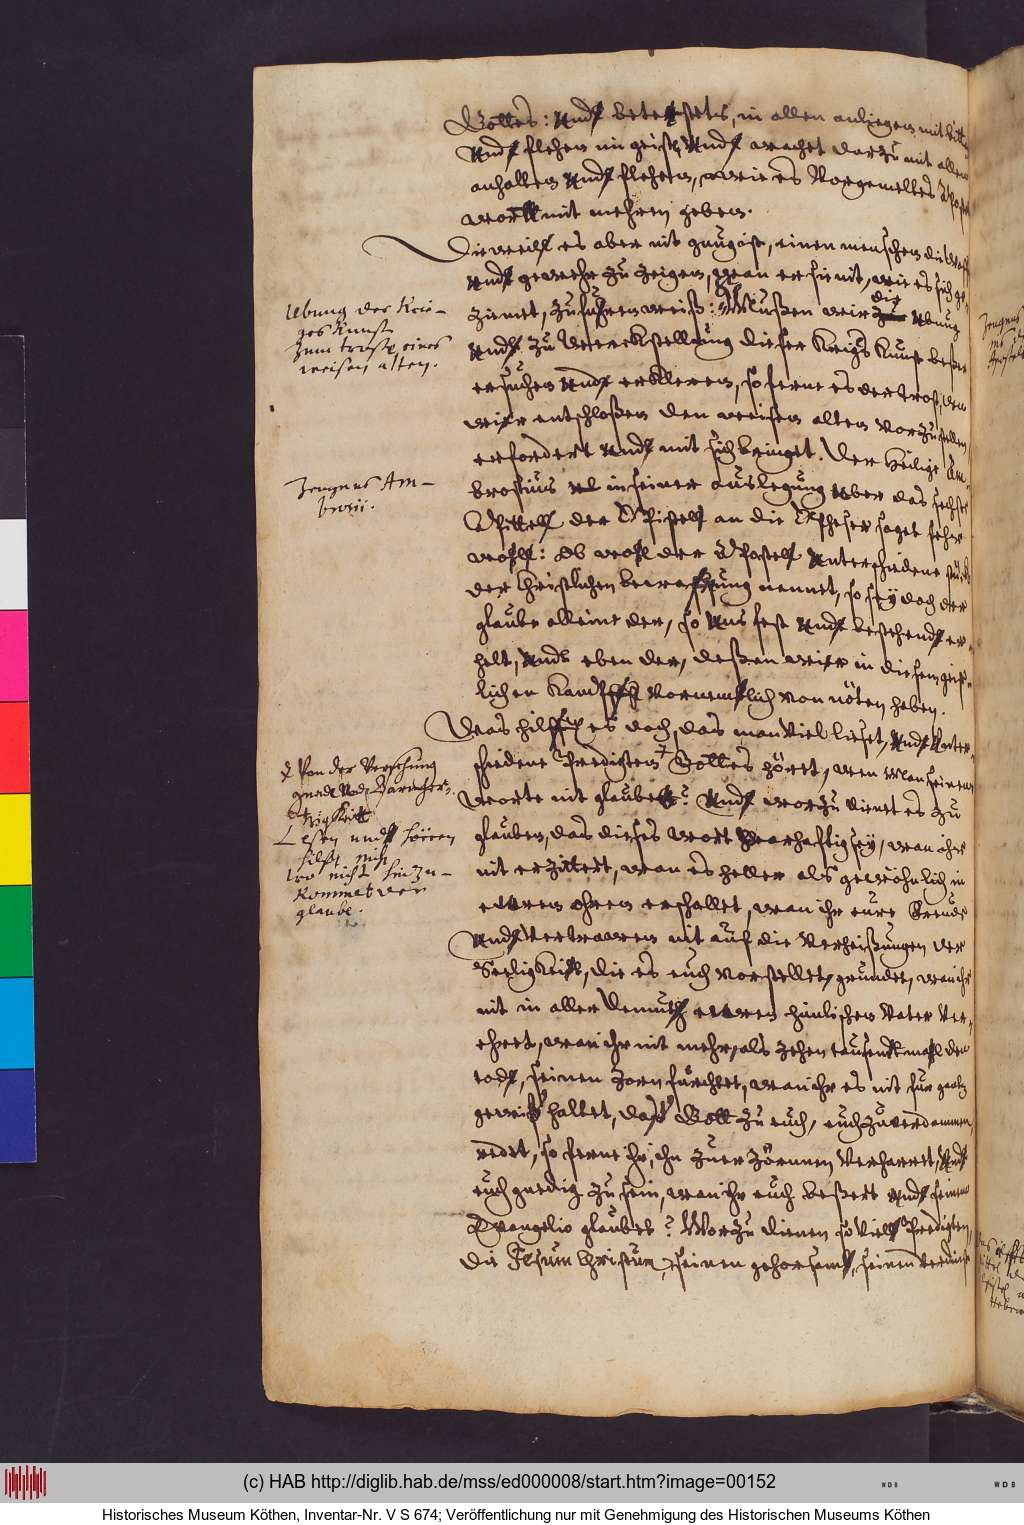 Gottes: Undt betet stets, in allen anliegen mit bitten
Undt flehen im geist, Undt wachet darzu mit allem
anhalten Undt flehen, wie es Vorgemeltes Apostel
wortt mit mehren geben.
Dieweill es aber nit gnug ist, einen menschen die Waffen
Undt gewehr zu zeigen, wan er sie nit, wie es sich ge-
ziemet, zu führen weiß: Mußen wir die Ubung
Undt zu Wercksstellung dieser Kriegs Kunst beßer
ersuchen Undt erkleren, so ferne es der trost, den
wir entschloßen den weisen alten Vorzustellen
erfordert Undt mit sich bringet. Der Heilige Am-
brosius in seiner auslegung uber das sechste
Capittell der Epistell an die Epheser saget sehr
wohll: Ob wohl der Apostell Unterschiedene stück
der Christlichen bewaffnung nennet, so sey doch der
glaube alleine der, so Uns fest Undt bestehendt er-
helt, Undt eben der, deßen wir in diesem geist-
lichen Kampff Vornemblich von nöten haben.
Was hilfft es doch, das man Viel lieset, Undt Unter-
schiedene Predigten Gottes höret, wen Man seinem
worte nit glaubett? Undt worzu dienet es zu
glauben, das dieses wort Warhaftig sey, wan ihr
nit erzittert, wan es heller als gewöhnlich in
ewren ohren erschallet, wan ihr eure freude
Undt Vertrawen nit auf die Verheißungen der
Seeligkeit, die es euch Vorstellet, grundet, wan ihr
nit in aller demuth ewren himlischen Vater Ver-
ehret, wan ihr nit mehr, als zehen tausendt mahl den
todt, seinen Zorn fürchtet, wan ihr es nit für gantz
gewiß haltet, daß Gott zu euch, euch zu verdammen,
redet, so ferne ihr, ihn zu erzörnen Verharret, Undt
euch gnedig zu sein, wan ihr euch beßert Undt seinem
Evangelio glaubet? Worzu dienen so Viell Predigten,
die Jesum Christum, seinen gehorsam, seinen verdinst
Ubung der Krie-
ges Kunst
zum trost eines
weisen alten.
Zeugnus Am-
brosii.
Von der Versehung
gnade Undt Barmhertz-
igkeitt
Lesen undt hören
hilft nicht
wo nicht hinzu-
kommet der
glaube.
Zeugnus
(c) HAB http://diglib.hab.de/mss/ed000008/start.htm?image=00152
WDB
WDB
Historisches Museum Köthen, Inventar-Nr. V S 674; Veröffentlichung nur mit Genehmigung des Historischen Museums Köthen